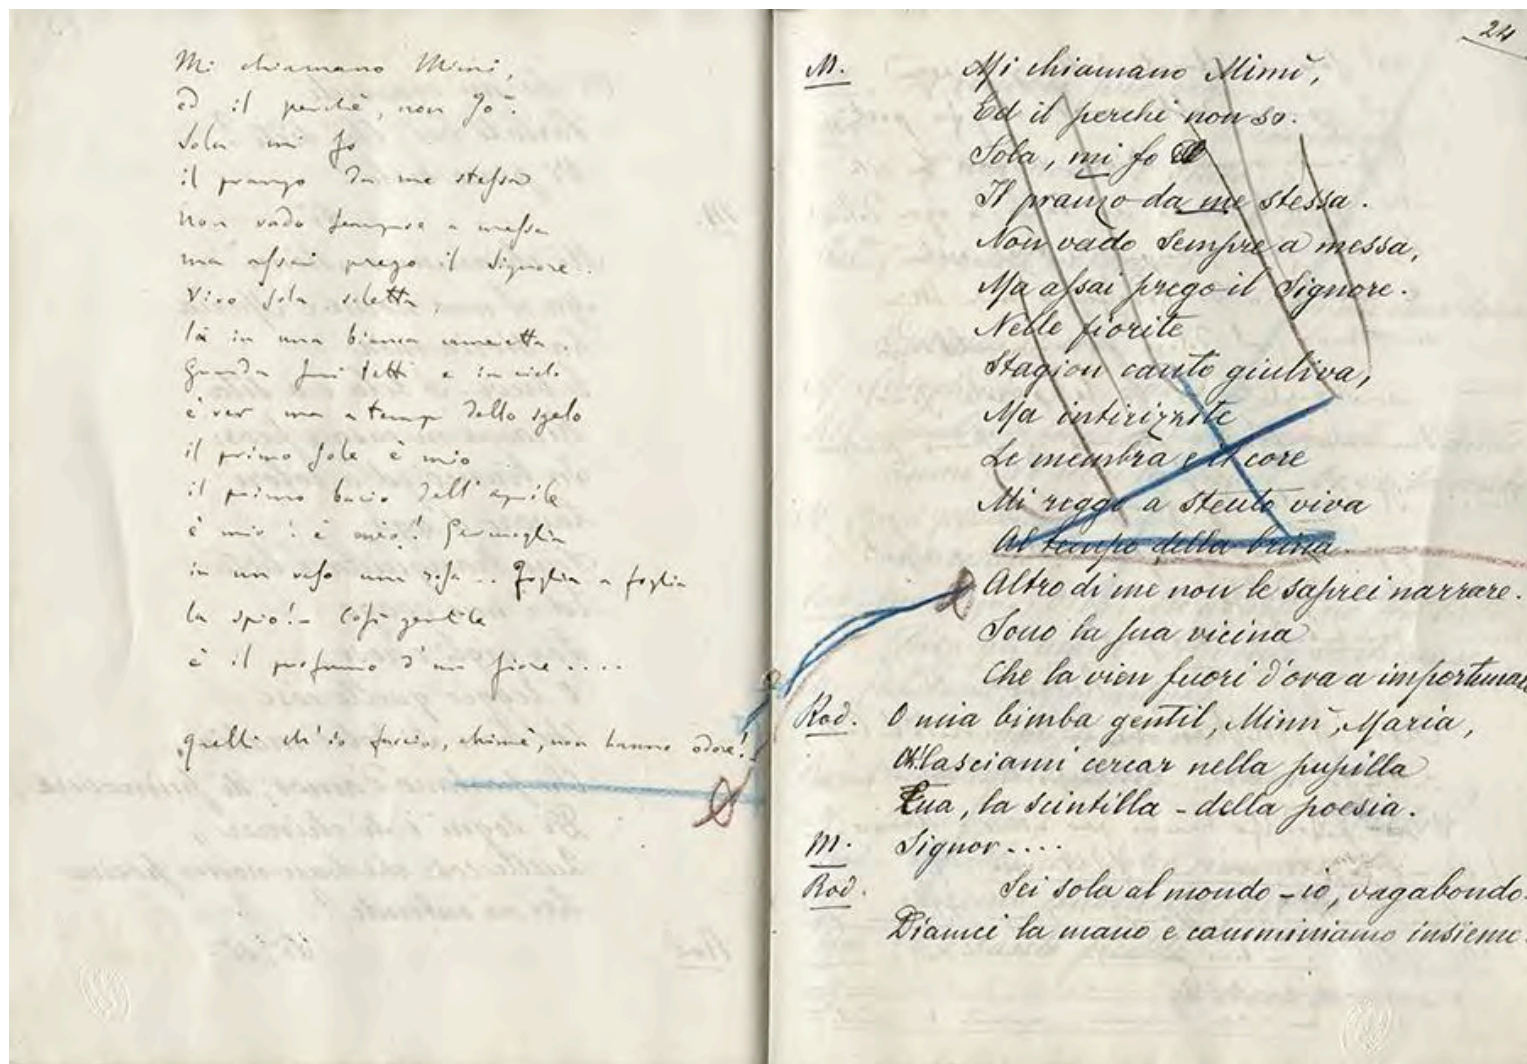 Mi chiamano Mimì,
ed il perchè, non so.
Sola mi fo
il pranzo da me stessa
Non vado sempre a messa
ma assai prego il Signore..
Vivo sola soletta,
là in una bianca cameretta.
Guardo sui tetti e in cielo
è ver ma a tempo dello sgelo
il primo sole è mio
il primo bacio dell'aprile
è mio! è mio! Germoglia
in un vaso una rosa.. foglia a foglia
la spio! - Così gentile
è il profumo d'un fiore....
quelli ch'io faccio, ahimè, non hanno odore!
24
M. Mi chiamano Mimì,
Ed il perchè non so.
Sola, mi fo
Il pranzo da me stessa.
Non vado sempre a messa,
Ma assai prego il Signore.
Nelle fiorite
Stagion canto giuliva,
Ma intirizzite
Le membra e il core
Mi reggo a stento viva
Al tempo della brina.
Altro di me non le saprei narrare.
Sono la sua vicina
Che la vien fuori d'ora a importunare
Rod. O mia bimba gentil, Mimì, Maria,
lasciami cercar nella pupilla
Tua, la scintilla - della poesia.
M. Signor....
Rod. Sei sola al mondo - io, vagabondo.
Diamci la mano e camminiamo insieme.